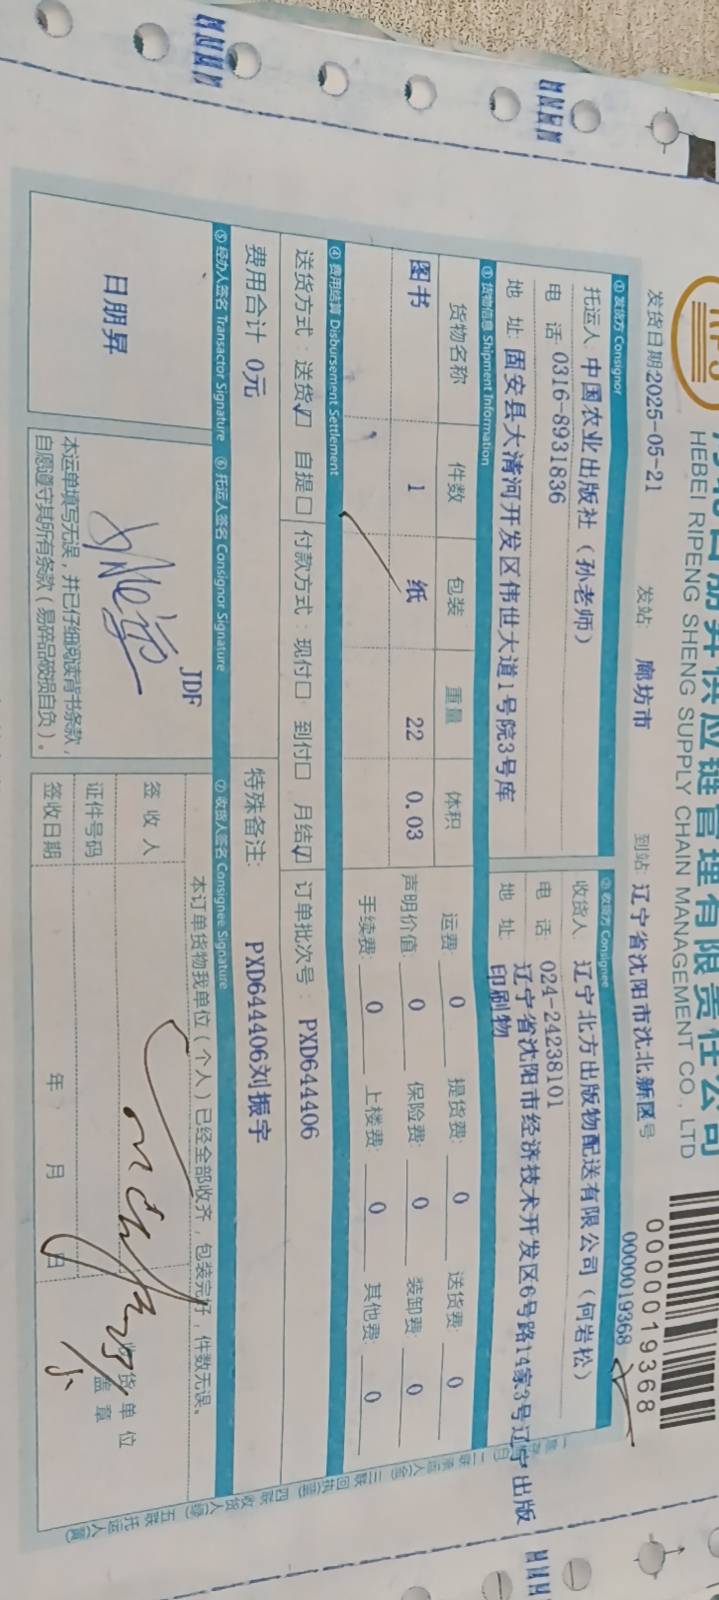 日朋昇供应链管理有限责任公司
HEBEI RIPENG SHENG SUPPLY CHAIN MANAGEMENT CO., LTD
0000019368
发货日期2025-05-21 发站: 廊坊市 到站: 辽宁省沈阳市沈北新区 号 0000019368
① 发货方 Consignor ② 收货方 Consignee
托运人 中国农业出版社（孙老师） 收货人 辽宁北方出版物配送有限公司（何岩松）
电 话 0316-8931836 电 话 024-24238101
地 址: 固安县大清河开发区伟世大道1号院3号库 地 址 辽宁省沈阳市经济技术开发区6号路14家3号辽宁出版
印刷物
③ 货物信息 Shipment Information
货物名称 件数 包装 重量 体积 运费: 0 提货费: 0 送货费: 0
图书 1 纸 22 0.03 声明价值: 0 保险费: 0 装卸费: 0
手续费: 0 上楼费: 0 其他费: 0
④ 费用结算 Disbursement Settlement
送货方式: 送货☑ 自提□ 付款方式: 现付□ 到付□ 月结☑ 订单批次号: PXD644406
费用合计 0元 特殊备注: PXD644406刘振宇
⑤ 经办人签名 Transactor Signature ⑥ 托运人签名 Consignor Signature ⑦ 收货人签名 Consignee Signature
日朋昇
JDF
本运单填写无误，并已仔细阅读背书条款，
自愿遵守其所有条款（易碎品破损自负）。
本订单货物我单位（个人）已经全部收齐，包装完好，件数无误。
签收人
证件号码
收货单位
盖章
签收日期 年 月 日